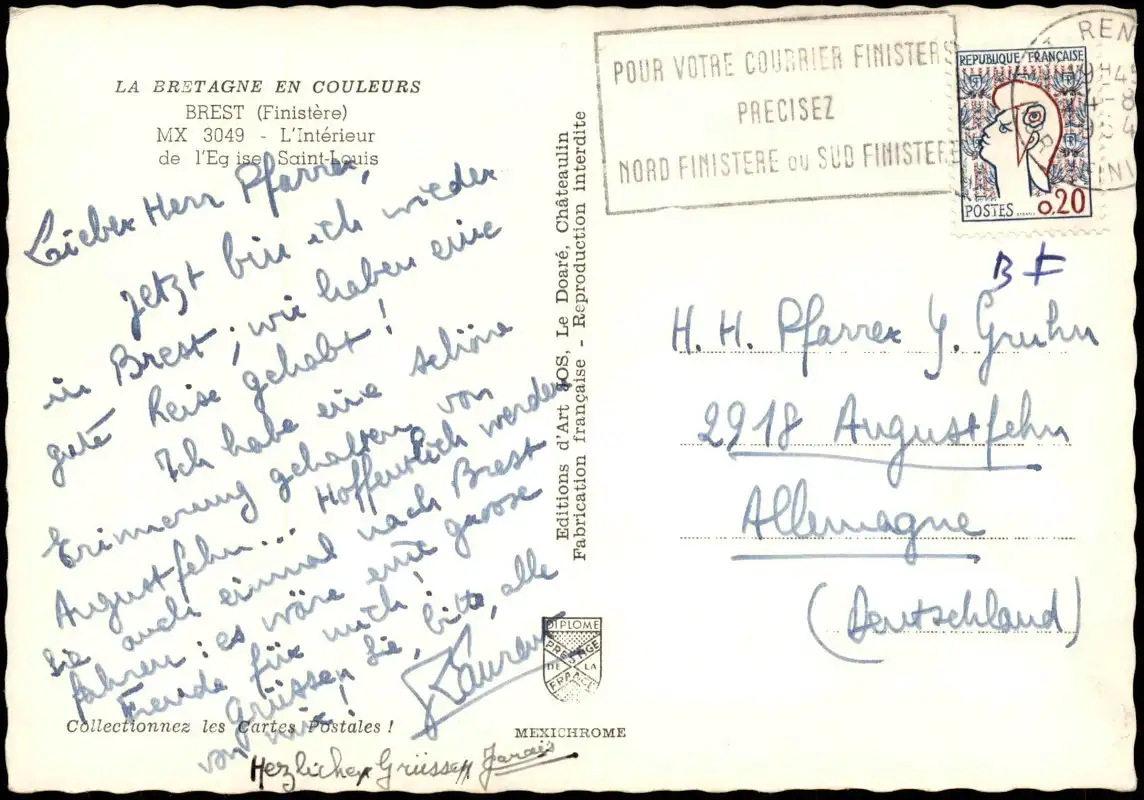 LA BRETAGNE EN COULEURS
BREST (Finistère)
MX 3049 - L'Intérieur
de l'Eglise Saint-Louis
Lieber Herr Pfarrer,
jetzt bin ich wieder
in Brest; wir haben eine
gute Reise gehabt!
Ich habe eine schöne
Erinnerung gehalten von
Augustfehn... Hoffentlich werden
Sie auch einmal nach Brest
fahren: es wäre eine grosse
Freude für mich!
Grüssen Sie, bitte, alle
von mir!
Laurent
Collectionnez les Cartes Postales !
Herzlichen Grüssen
Editions d'Art JOS, Le Doaré, Châteaulin
Fabrication française - Reproduction interdite
DIPLOME
PRESTAGE
DE LA
FRANCE
MEXICHROME
POUR VOTRE COURRIER FINISTERE
PRECISEZ
NORD FINISTERE OU SUD FINISTERE
REPUBLIQUE FRANÇAISE
POSTES 0,20
REN
19H45
4-8
B F
H. H. Pfarrer J. Gruhn
2918 Augustfehn
Allemagne
(Deutschland)